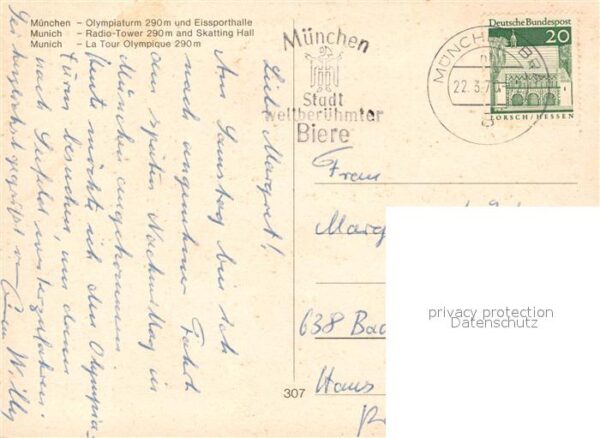 München – Olympiaturm 290 m und Eissporthalle
Munich – Radio-Tower 290 m and Skatting Hall
Munich – La Tour Olympique 290 m
Liebe Margret!
Am Samstag bin ich
nach angenehmer Fahrt
am späten Nachmittag in
München angekommen.
Heute möchte ich den Olympia-
turm besuchen, um dann
nach
Sei herzlichst gegrüßt von
Willy
München
Stadt
weltberühmter
Biere
MÜNCHEN
22.3.7
Deutsche Bundespost
20
LORSCH/HESSEN
Frau
Marg
638 Bad
Haus
307
privacy protection
Datenschutz